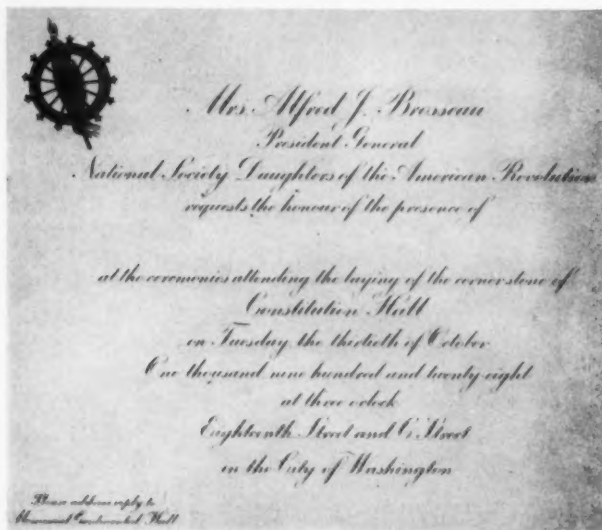 Mrs. Alfred J. Brosseau
President General
National Society Daughters of the American Revolution
requests the honour of the presence of
at the ceremonies attending the laying of the corner stone of
Constitution Hall
on Tuesday, the thirtieth of October
One thousand nine hundred and twenty-eight
at three o'clock
Eighteenth Street and C Street
in the City of Washington
Please address reply to
Memorial Continental Hall